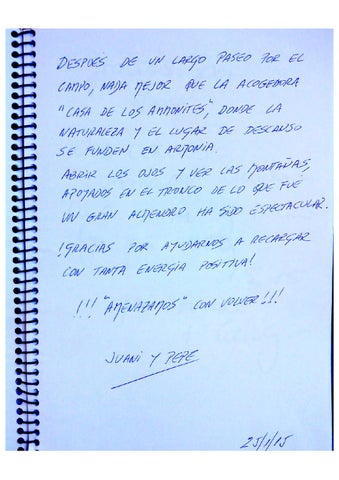 DESPUÉS DE UN LARGO PASEO POR EL
CAMPO, NADA MEJOR QUE LA ACOGEDORA
"CASA DE LOS AMMONITES", DONDE LA
NATURALEZA Y EL LUGAR DE DESCANSO
SE FUNDEN EN ARMONIA.
ABRIR LOS OJOS Y VER LAS MONTAÑAS,
APOYADOS EN EL TRONCO DE LO QUE FUE
UN GRAN ALMENDRO HA SIDO ESPECTACULAR.
¡GRACIAS POR AYUDARNOS A RECARGAR
CON TANTA ENERGÍA POSITIVA!
¡¡¡"AMENAZAMOS" CON VOLVER!!!
JUANI Y PEPE
25/1/15